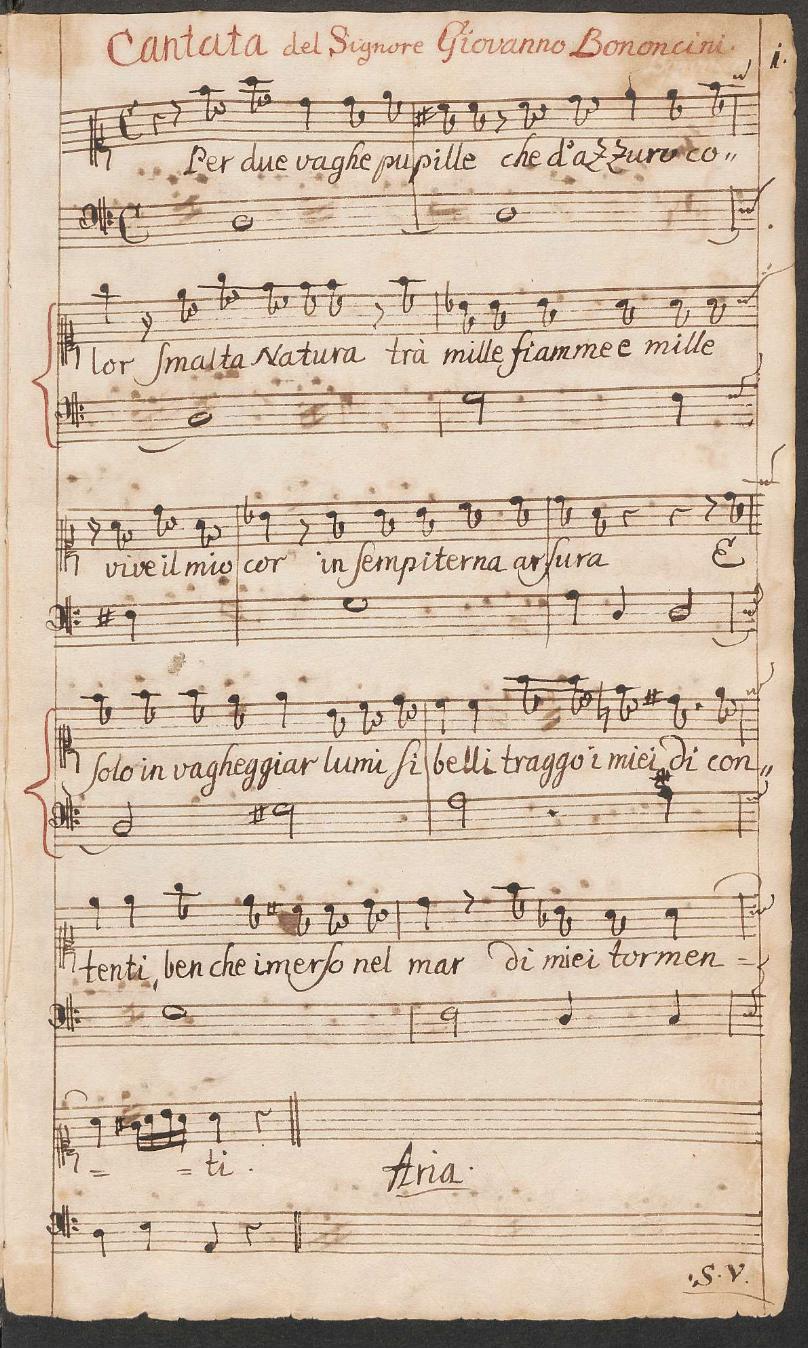 Cantata del Signore Giovanno Bononcini.
1.
Per due vaghe pupille che d'azzuro co„
lor smalta Natura trà mille fiamme e mille
vive il mio cor in sempiterna arsura E
solo in vagheggiar lumi si belli traggo i miei di con„
tenti, ben che imerso nel mar di miei tormen =
= = ti.
Aria.
.S.V.